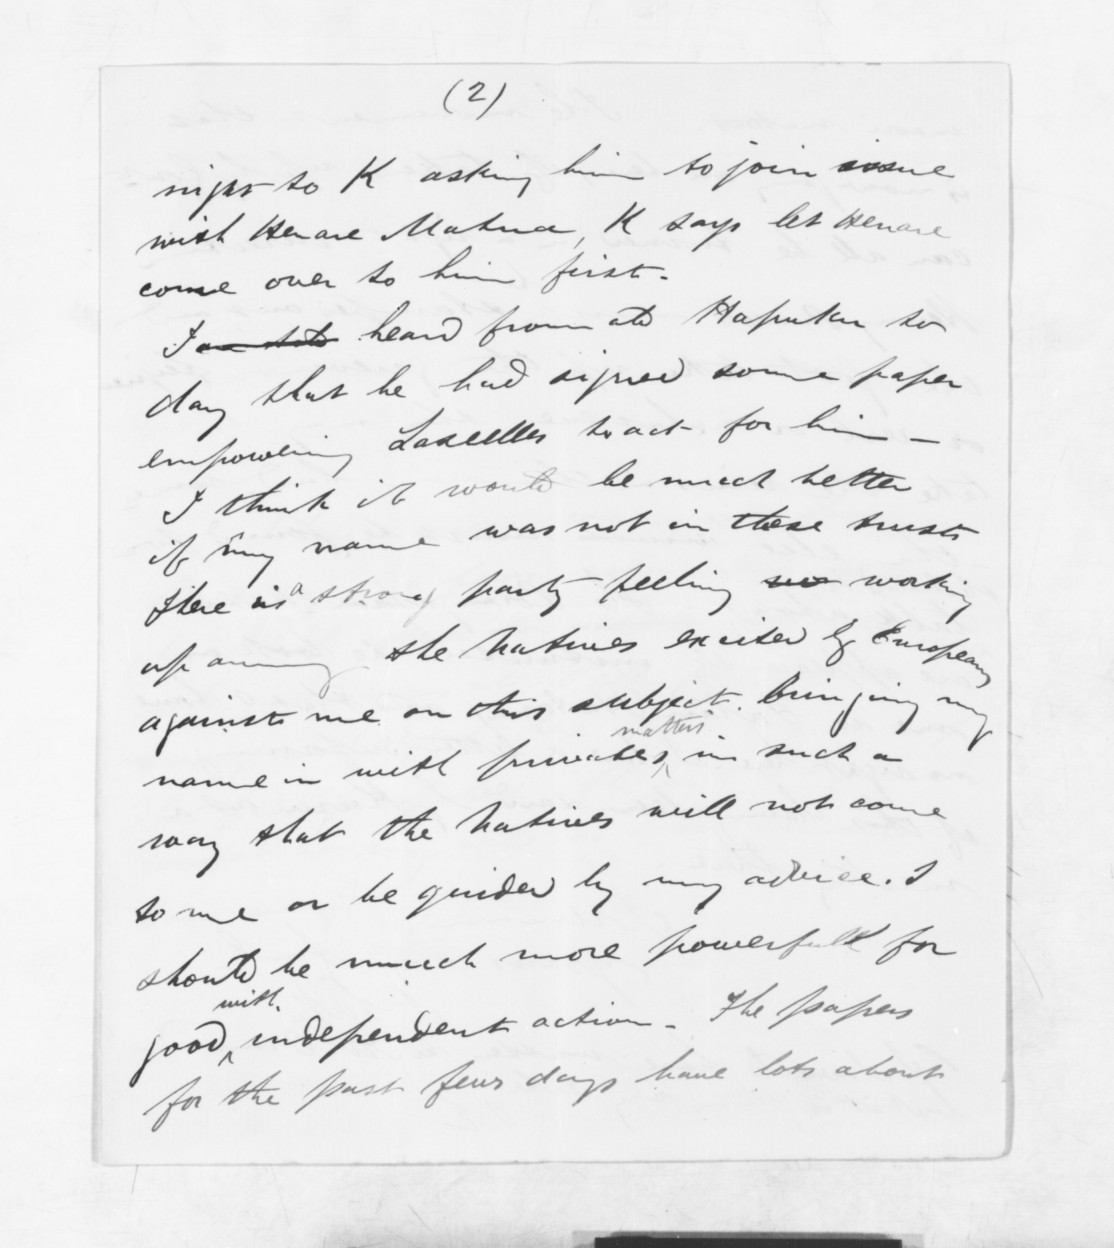 (2)
night to K asking him to join issue
with Henare Matua, K says let Henare
come over to him first.
I heard from old Hapuku to
day that he had signed some paper
empowering Lascelles to act for him -
I think it would be much better
if my name was not in these trusts
There is a strong party feeling working
up among the Natives excited by Europeans
against me on this subject. bringing my
name in with privates matters in such a
way that the Natives will not come
to me or be guided by my advice. I
should be much more powerfull for
good with independent action - The papers
for the past few days have lots about